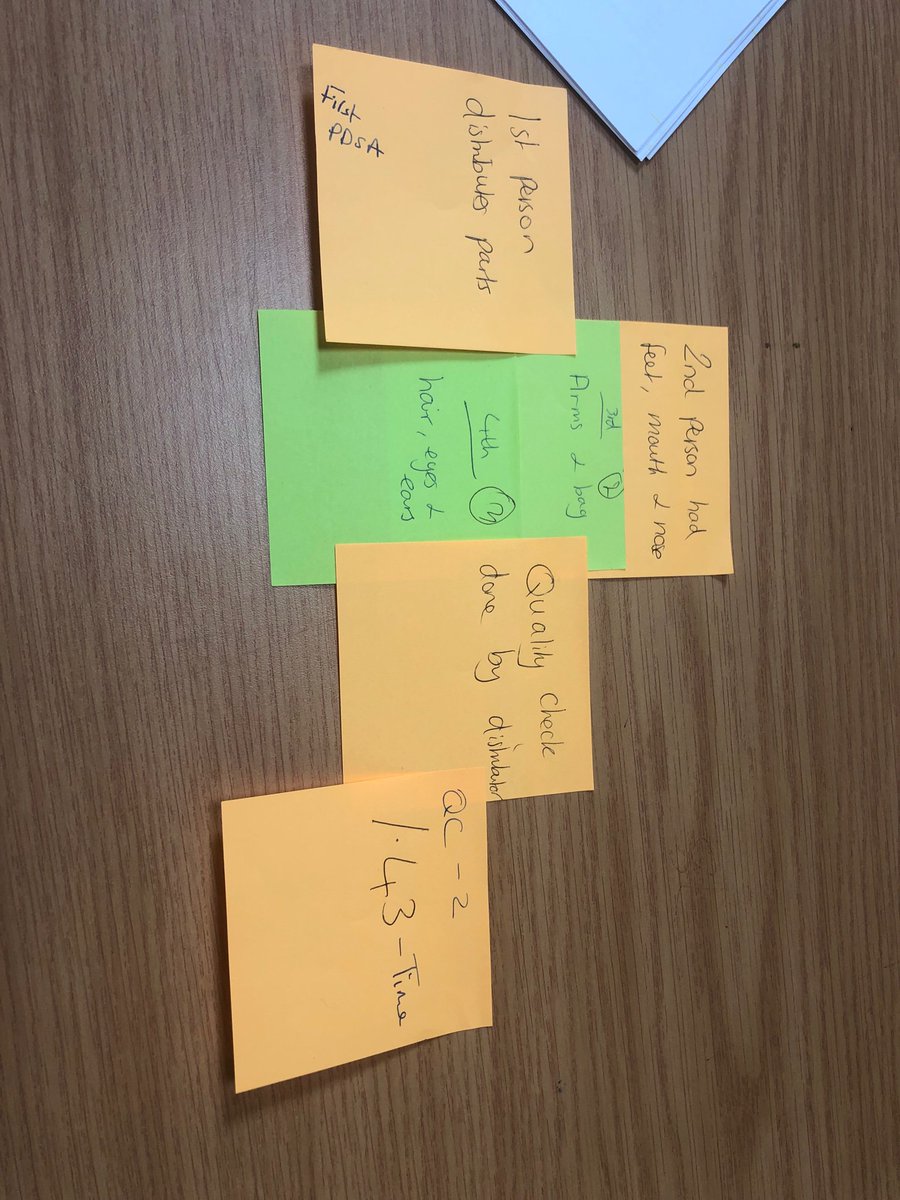 1st person
distributes parts
First
PDSA
2nd person had
feet, mouth & nose
3rd ②
Arms & bag
4th ③
hair, eyes &
ears
Quality check
done by distributor
QC - 2
1.43 - Time